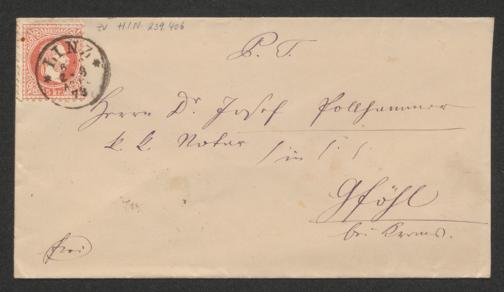 zu H.I.N. 239.406
LINZ
73
P. T.
Herrn Dr Josef Pollhammer
k. k. Notar
/in/
Gföhl
bei Krems.
frei